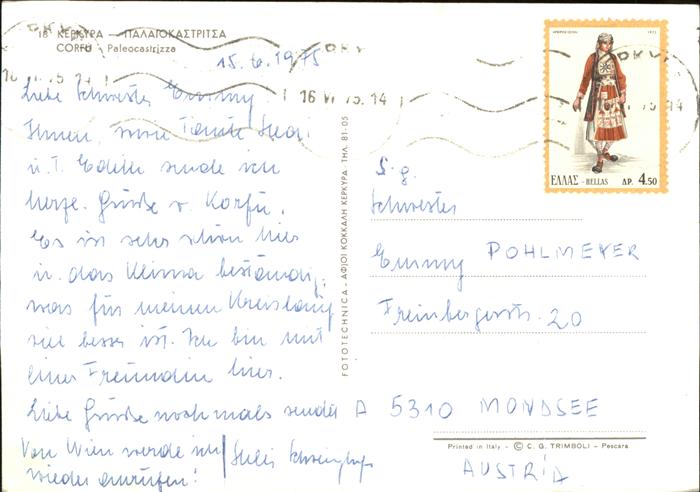 18 ΚΕΡΚΥΡΑ — ΠΑΛΑΙΟΚΑΣΤΡΙΤΣΑ
CORFU - Paleocastrizza
15.6.1975
16 VI 75. 14
Liebe Schwester Emmy
Ihnen, sowie Tante
u. T. Edith sende ich
herzl. Grüße v. Korfu.
Es ist sehr schön hier
u. das Klima beständig,
was für meinen Kreislauf
viel besser ist. Ich bin mit
einer Freundin hier.
Liebe Grüße nochmals sendet
Von Wien werde ich
wieder anrufen!
FOTOTECHNICA - ΑΦΙΟΙ ΚΟΚΚΑΛΗ ΚΕΡΚΥΡΑ - ΤΗΛ. 81-05
1972
ΕΛΛΑΣ - HELLAS ΔΡ. 4.50
S. g.
Schwester
Emmy POHLMEYER
Freinbergerstr. 20
A 5310 MONDSEE
Printed in Italy - © C. G. TRIMBOLI - Pescara
AUSTRIA